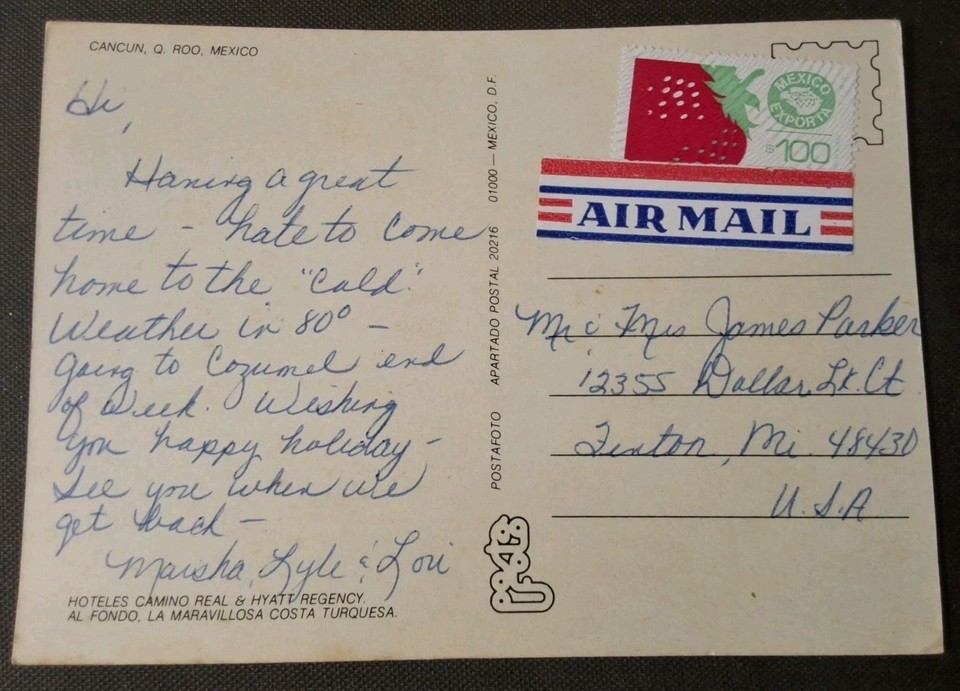 CANCUN, Q. ROO, MEXICO
Hi,
Having a great
time - hate to come
home to the "cold"
Weather in 80° -
going to Cozumel end
of week. Wishing
you happy holiday -
See you when we
get back -
Marsha, Lyle & Lori
HOTELES CAMINO REAL & HYATT REGENCY.
AL FONDO, LA MARAVILLOSA COSTA TURQUESA.
POSTAFOTO APARTADO POSTAL 20216 01000 — MEXICO, D.F.
MEXICO
EXPORTA
$100
AIR MAIL
Mr & Mrs James Parker
12355 Dollar Lk. Ct
Fenton, Mi. 48430
U.S.A